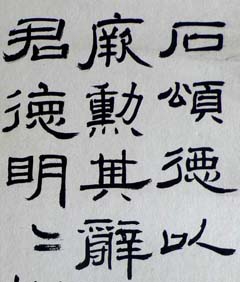 石頌德以
厥勳其辭
君德明〻